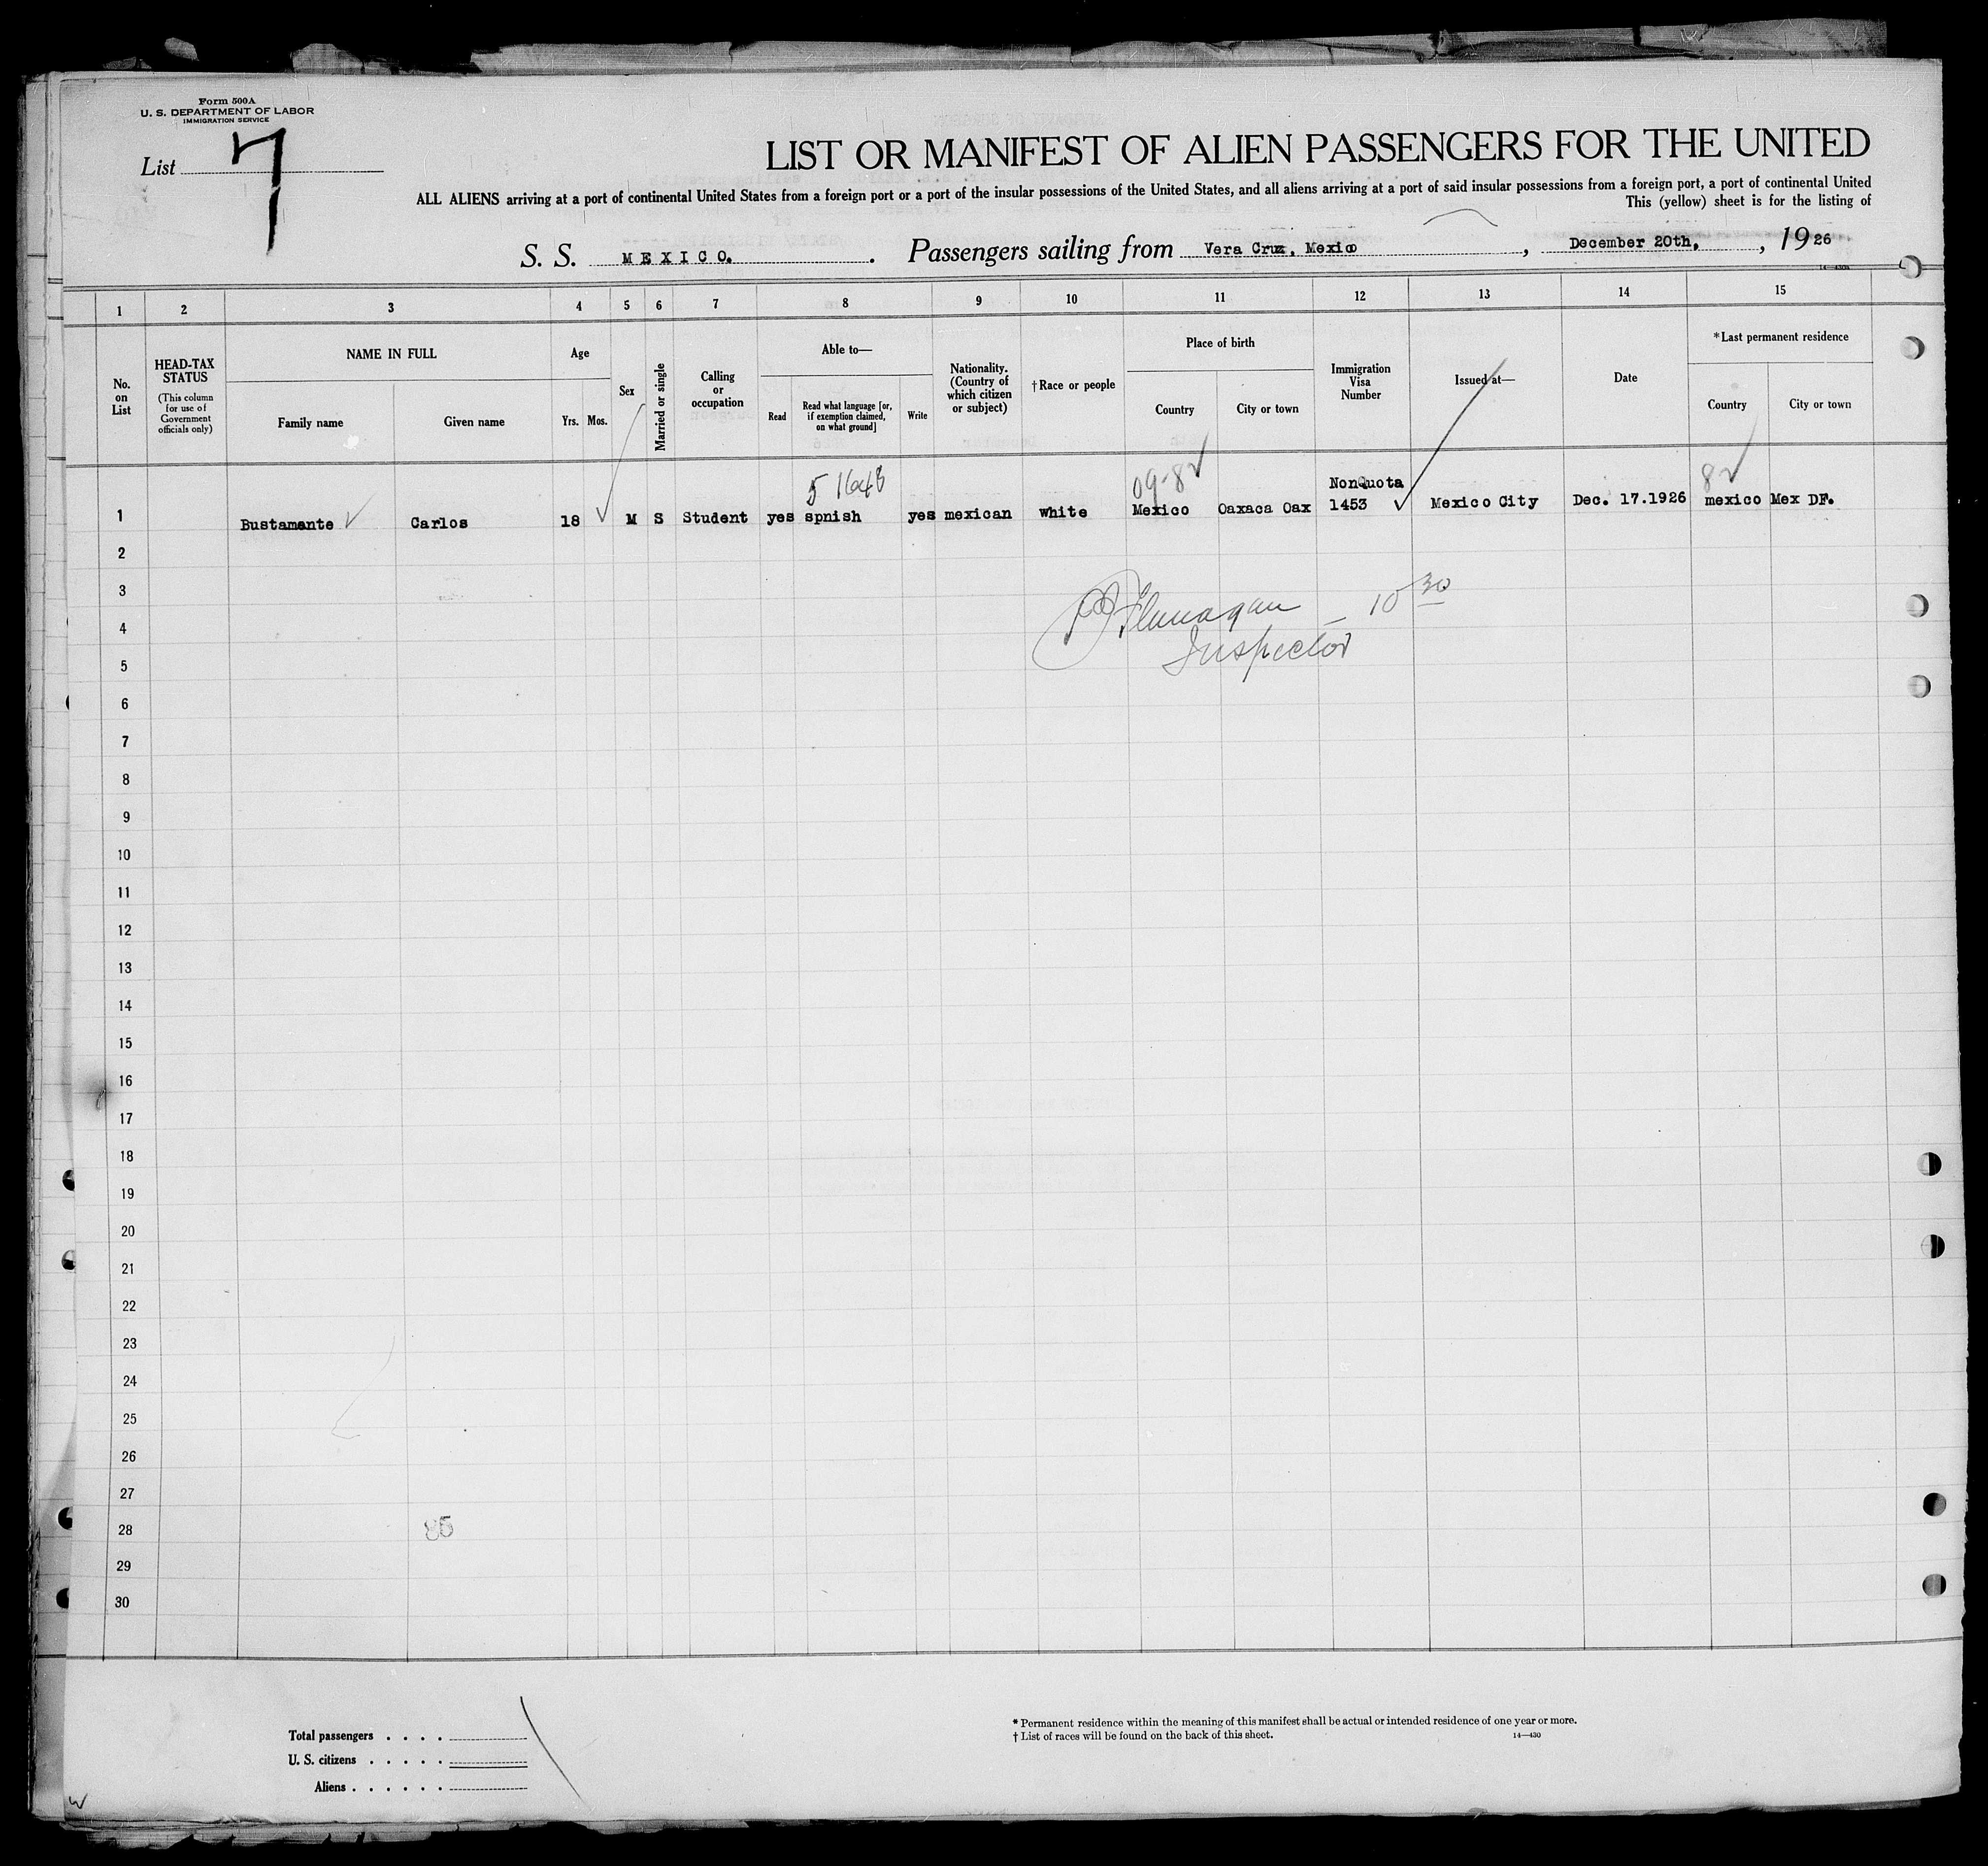 Form 500A
U. S. DEPARTMENT OF LABOR
IMMIGRATION SERVICE
List 7
LIST OR MANIFEST OF ALIEN PASSENGERS FOR THE UNITED
ALL ALIENS arriving at a port of continental United States from a foreign port or a port of the insular possessions of the United States, and all aliens arriving at a port of said insular possessions from a foreign port, a port of continental United
This (yellow) sheet is for the listing of
S. S. MEXICO. . Passengers sailing from Vera Cruz, Mexico , December 20th, , 1926
1 2 3 4 5 6 7 8 9 10 11 12 13 14 15
No. on List
HEAD-TAX STATUS
(This column for use of Government officials only)
NAME IN FULL
Family name
Given name
Age
Yrs. Mos.
Sex
Married or single
Calling or occupation
Able to—
Read
Read what language [or, if exemption claimed, on what ground]
Write
Nationality. (Country of which citizen or subject)
†Race or people
Place of birth
Country
City or town
Immigration Visa Number
Issued at—
Date
*Last permanent residence
Country
City or town
5 1648 09-82 NonQuota 82
1 Bustamante Carlos 18 M S Student yes spnish yes mexican white Mexico Oaxaca Oax 1453 Mexico City Dec. 17.1926 mexico Mex DF.
2
3
Flanagan 10 30
4
Inspector
5
6
7
8
9
10
11
12
13
14
15
16
17
18
19
20
21
22
23
24
25
26
27
28
29
30
Total passengers . . . .
U. S. citizens . . . . .
Aliens . . . . . .
* Permanent residence within the meaning of this manifest shall be actual or intended residence of one year or more.
† List of races will be found on the back of this sheet.
14—430